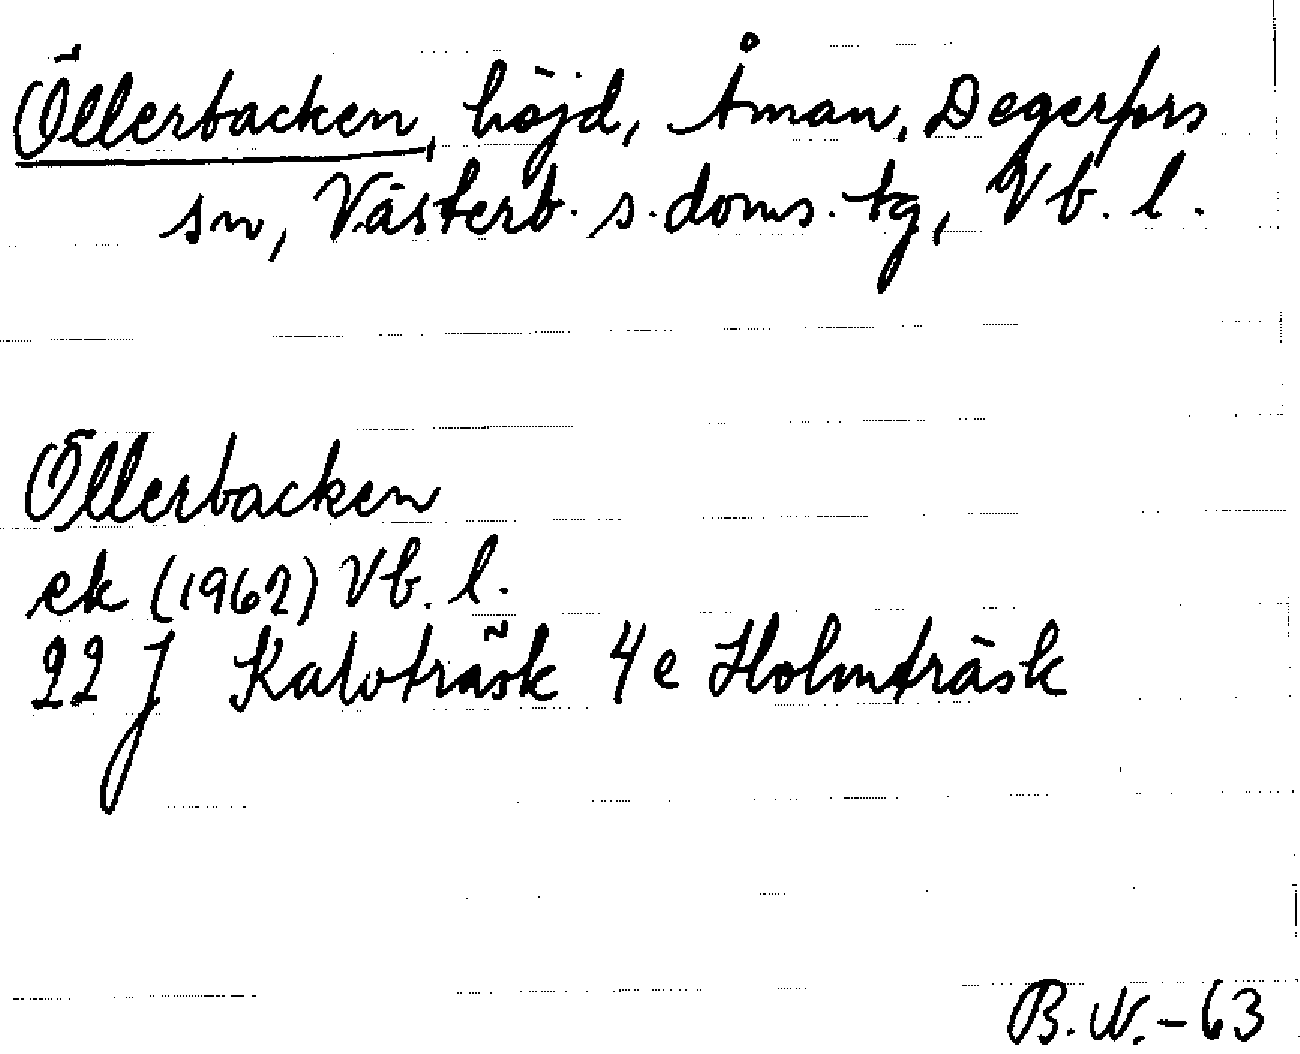 Öllerbacken, höjd, Åman, Degerfors
sn, Västerb. s. doms. tg, Vb. l.
Öllerbacken
ek (1962) Vb. l.
22 J Kalvträsk 4e Holmträsk
B. W. - 63